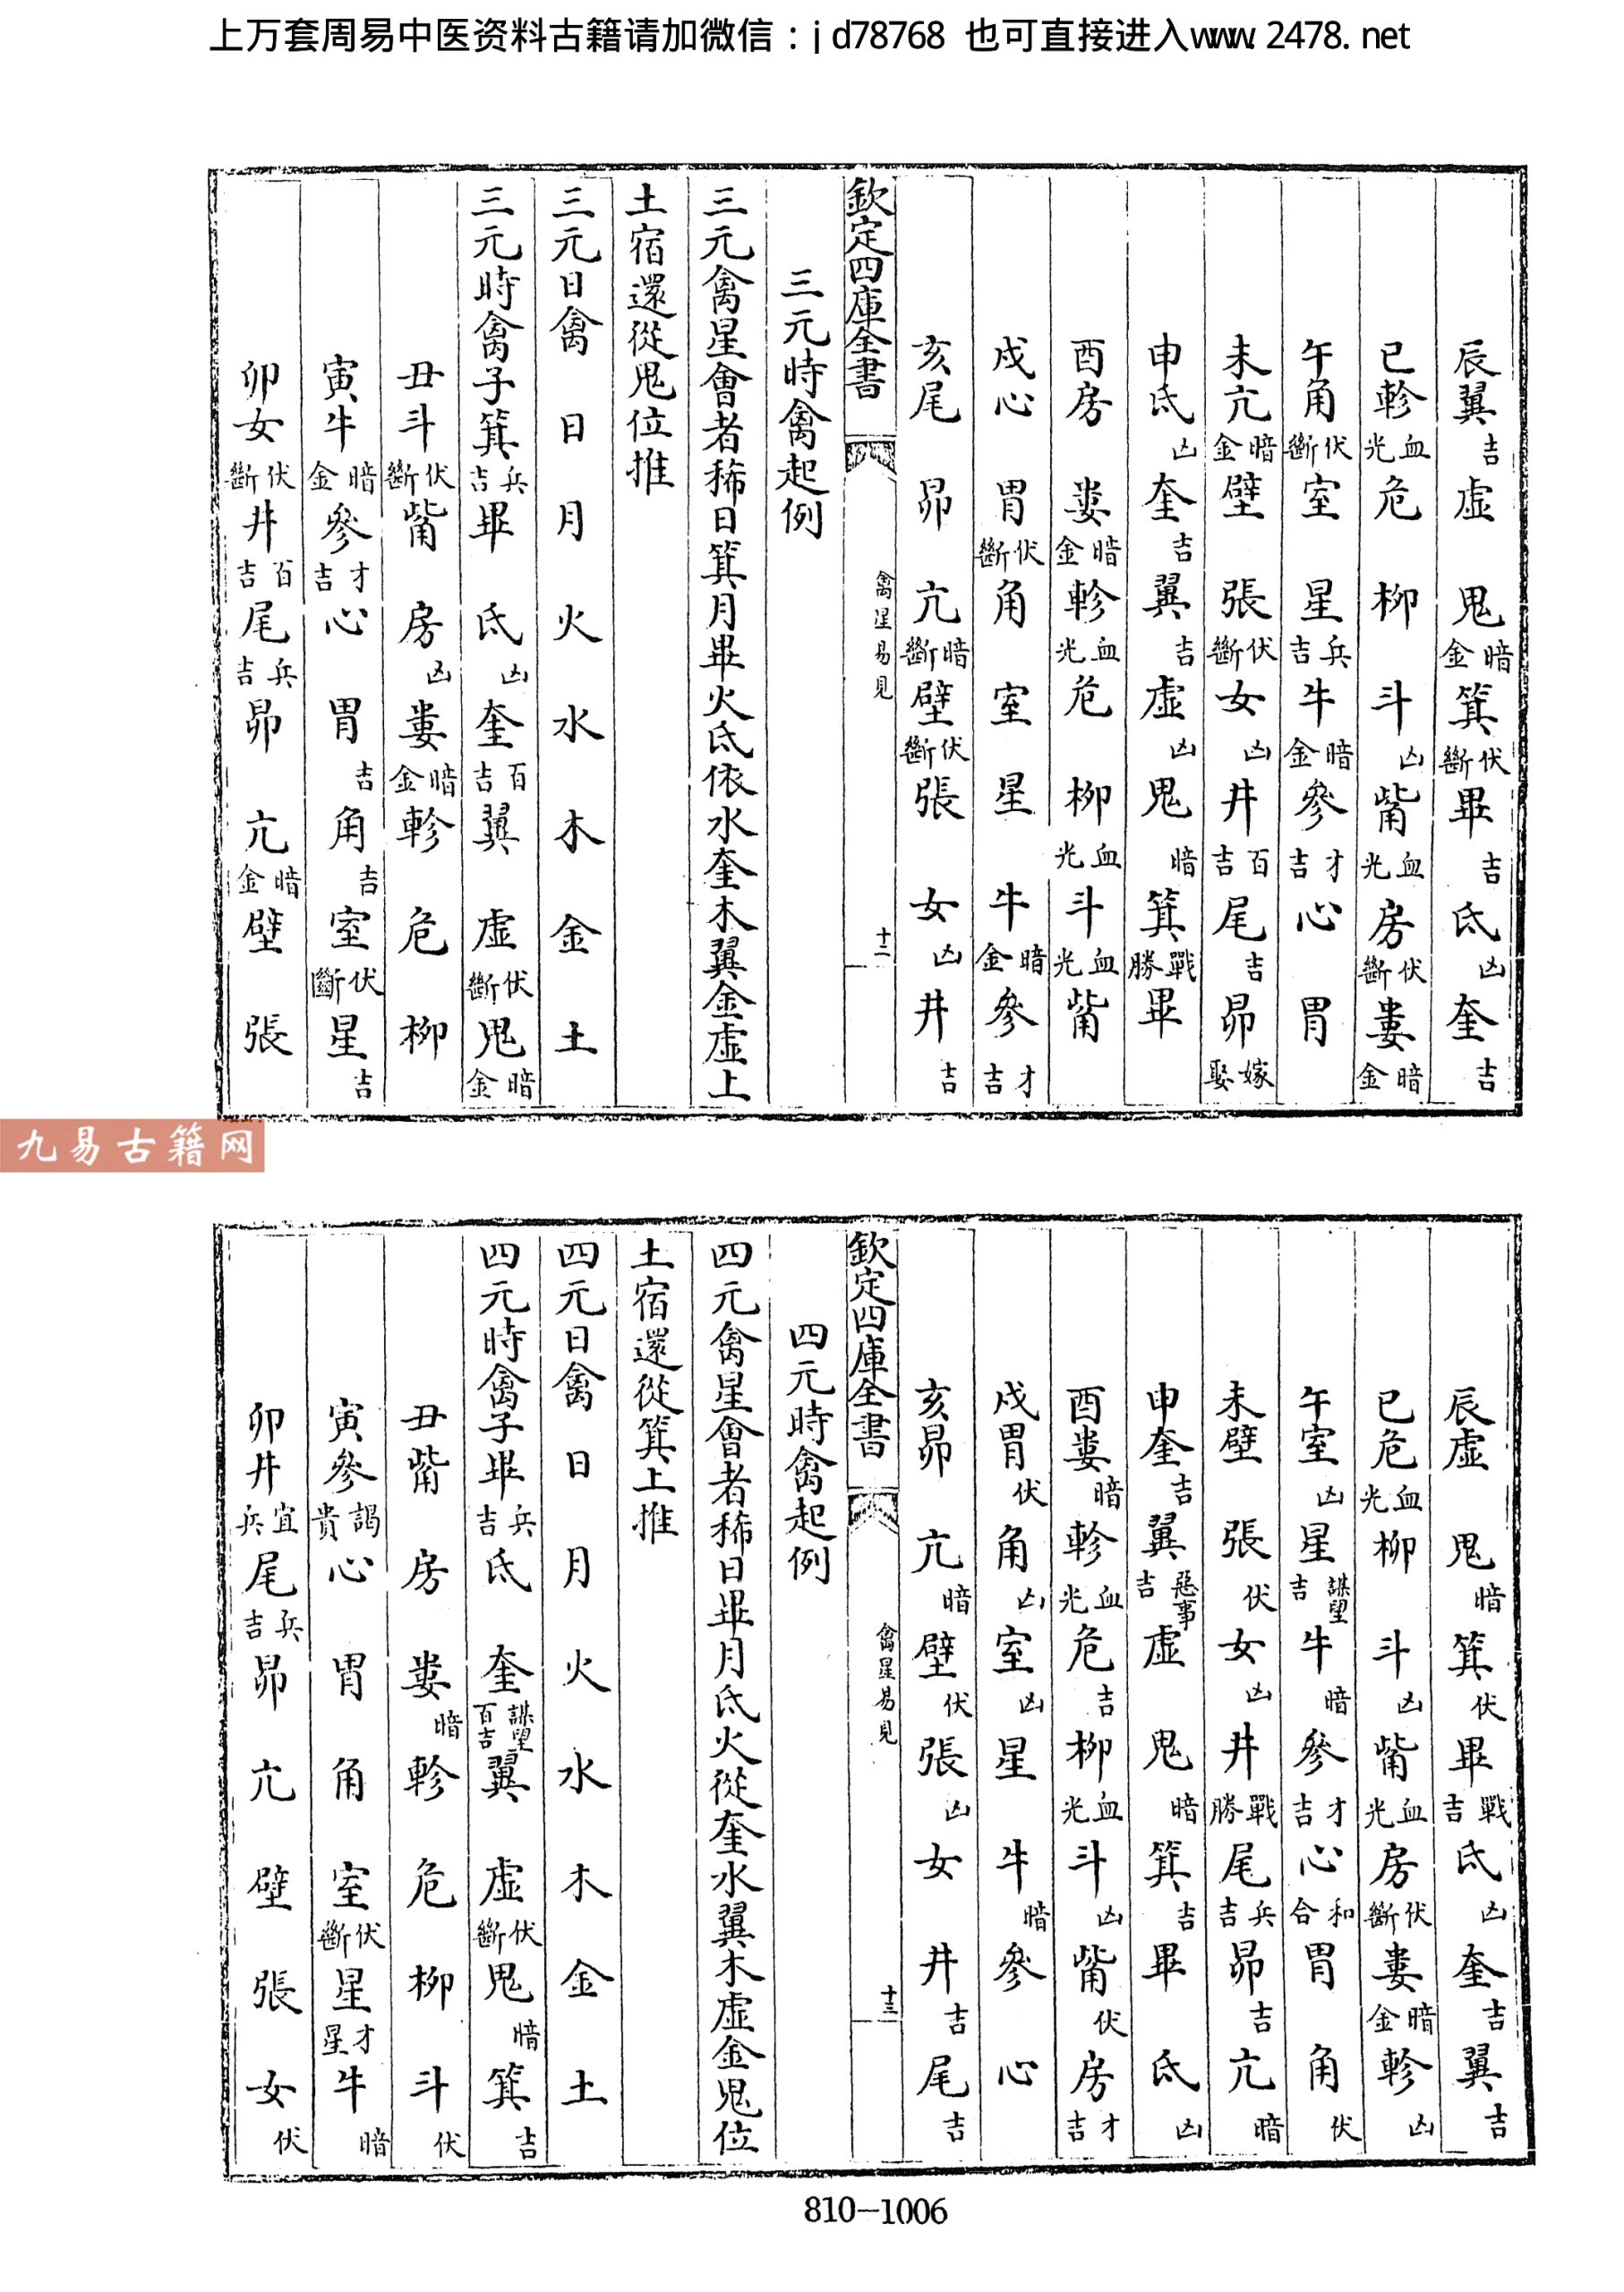 上万套周易中医资料古籍请加微信：jd78768 也可直接进入www.2478.net
辰翼吉虛鬼暗金箕伏斷畢吉氐凶奎吉
巳軫血光危柳斗凶觜血光房伏斷婁暗金
午角伏斷室星兵吉牛暗金參才吉心胃
未亢暗金壁張伏斷女凶井百吉尾吉昴嫁娶
申氐凶奎吉翼吉虛凶鬼暗箕戰勝畢
酉房婁暗金軫血光危柳血光斗血光觜
戌心胃伏斷角室星牛暗金參才吉
亥尾昴亢暗斷壁伏斷張女凶井吉
欽定四庫全書 禽星易見 十二
三元時禽起例
三元禽星會者稀日箕月畢火氐依水奎木翼金虛上
土宿還從鬼位推
三元日禽日月火水木金土
三元時禽子箕兵吉畢氐凶奎百吉翼虛伏斷鬼暗金
丑斗伏斷觜房凶婁暗金軫危柳
寅牛暗金參才吉心胃吉角吉室伏斷星吉
卯女伏斷井百吉尾兵吉昴亢暗金壁張
九易古籍网
辰虛鬼暗箕伏畢戰吉氐凶奎吉翼吉
巳危血光柳斗凶觜血光房伏斷婁暗金軫凶
午室凶星謀望吉牛暗參才吉心和合胃角伏
未壁張伏女凶井戰勝尾兵吉昴吉亢暗
申奎吉翼惡事吉虛鬼暗箕吉畢氐凶
酉婁暗軫血光危吉柳血光斗凶觜伏房才吉
戌胃伏角凶室凶星牛暗參心
亥昴亢暗壁伏張凶女井吉尾吉
欽定四庫全書 禽星易見 十三
四元時禽起例
四元禽星會者稀日畢月氐火從奎水翼木虛金鬼位
土宿還從箕上推
四元日禽日月火水木金土
四元時禽子畢兵吉氐奎謀望百吉翼虛伏斷鬼暗箕吉
丑觜房婁暗軫危柳斗伏
寅參謁貴心胃角室伏斷星才星牛暗
卯井宜兵尾兵吉昴亢壁張女伏
810-1006